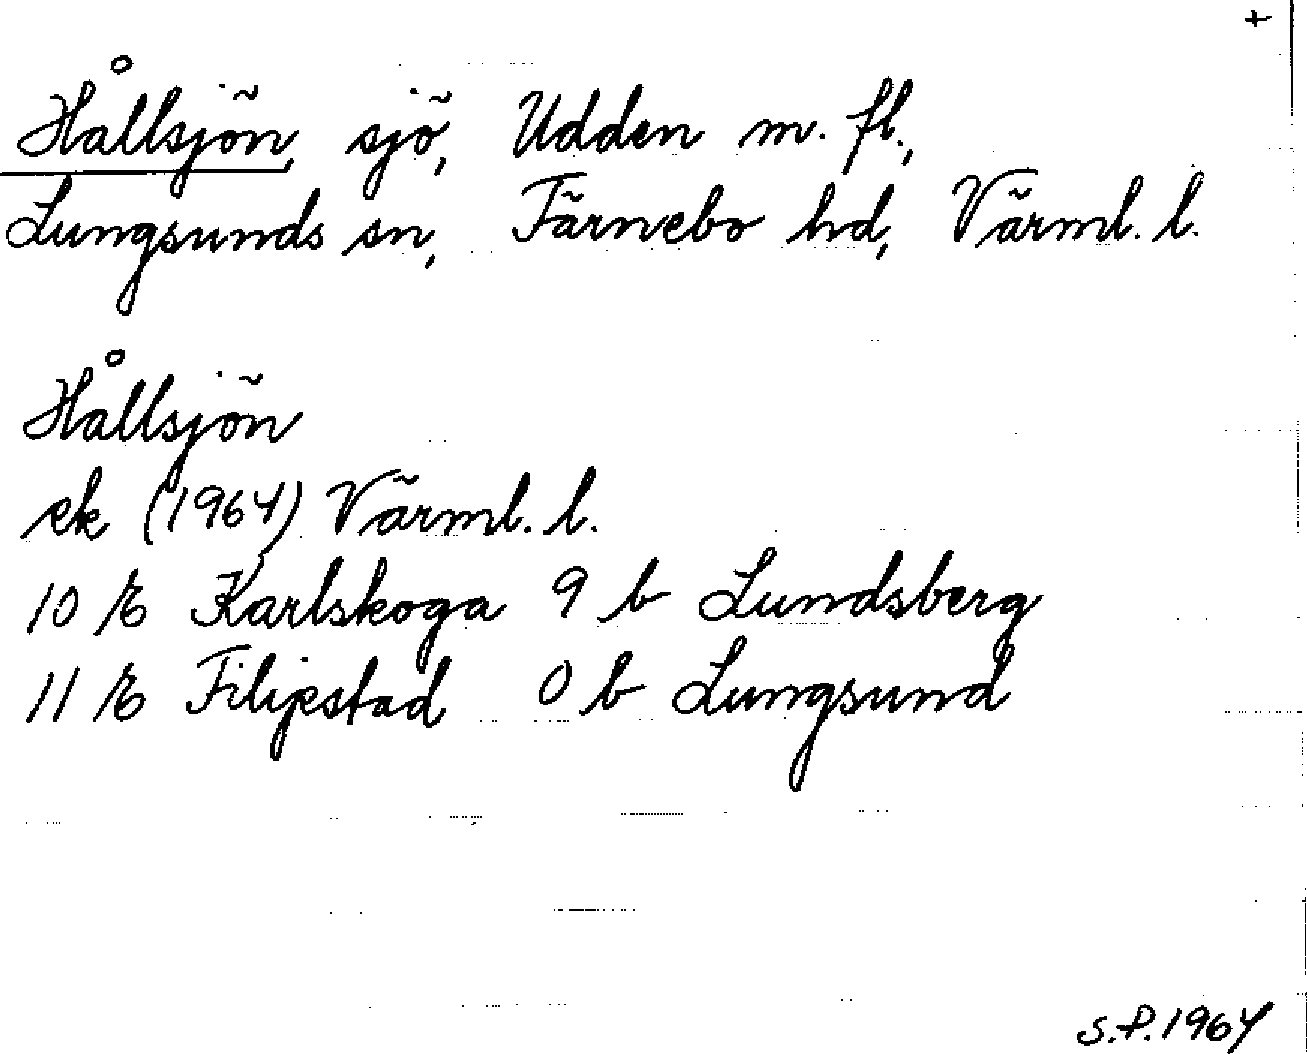 +
Hållsjön, sjö, Udden m. fl.,
Lungsunds sn, Färnebo hd, Värml. l.
Hållsjön
ek (1964) Värml. l.
10 E Karlskoga 9 b Lundsberg
11 E Filipstad 0 b Lungsund
S.P. 1964